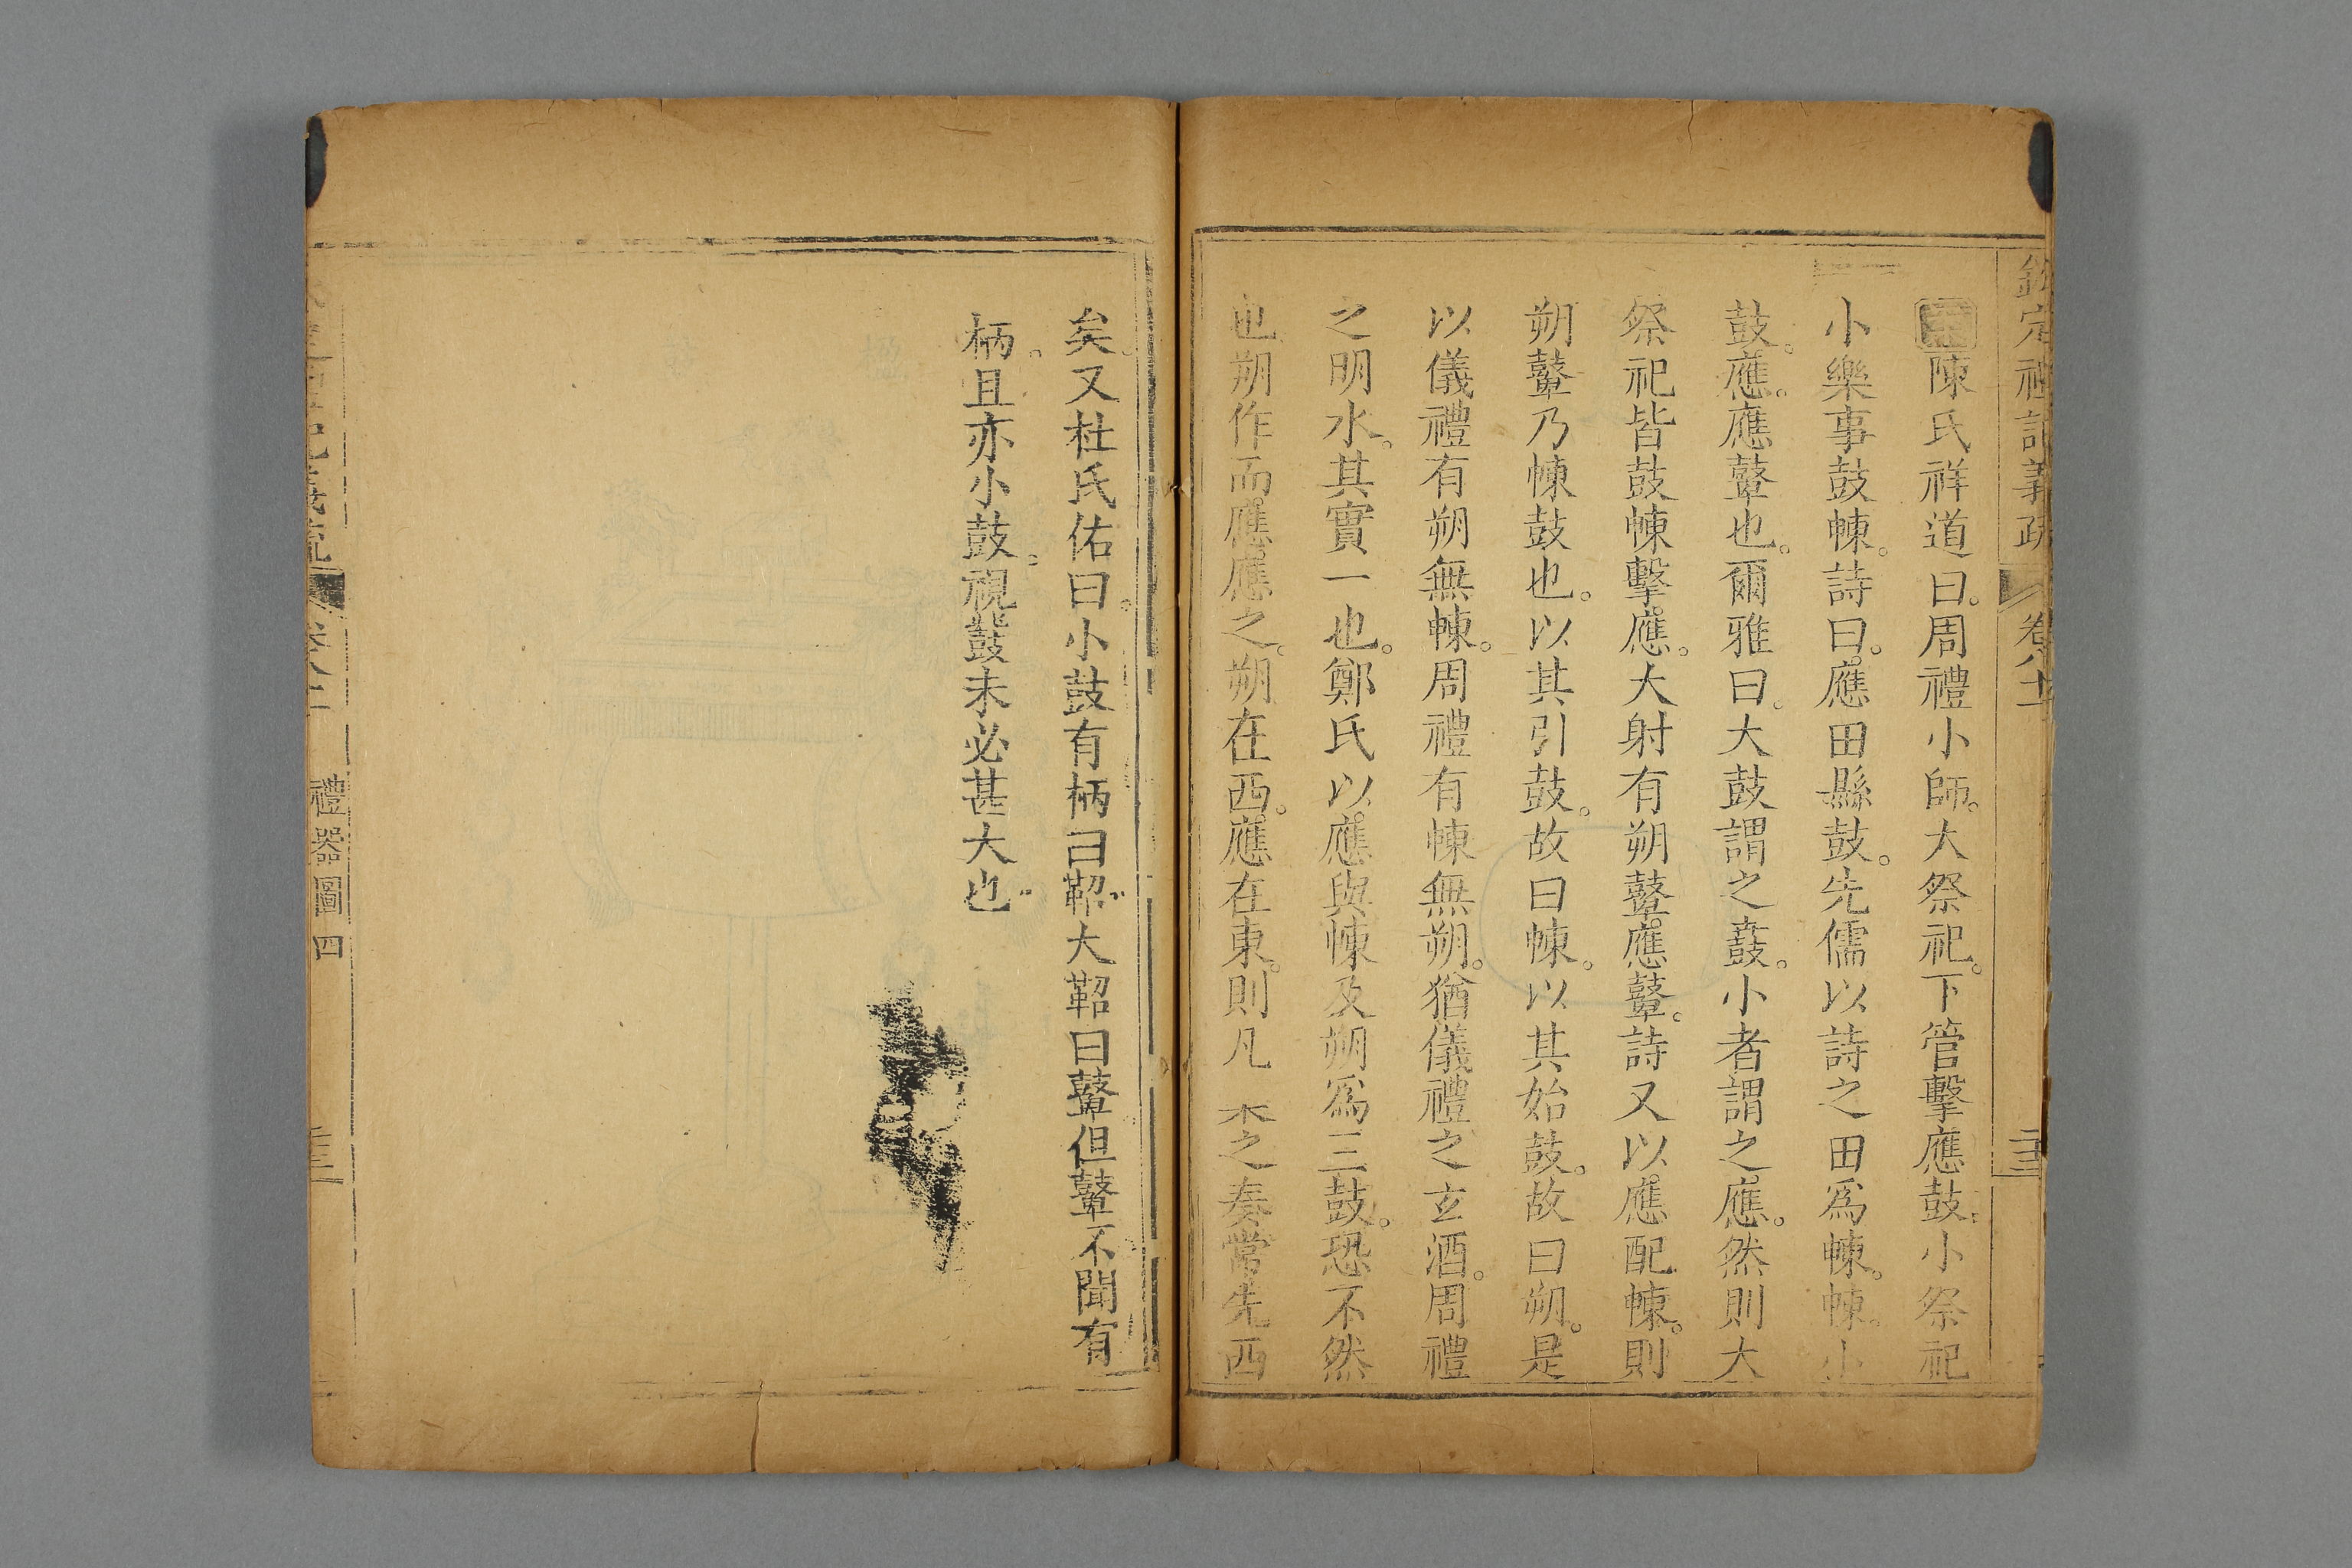 欽定禮記義疏 卷八十二 二十三
陳氏祥道曰。周禮小師。大祭祀。下管擊應鼓。小祭祀
小樂事鼓朄。詩曰。應田縣鼓。先儒以詩之田為朄。朄。小
鼓。應。應鼙也。爾雅曰。大鼓謂之鼖。小者謂之應。然則大
祭祀皆鼓朄擊應。大射有朔鼙應鼙。詩又以應配朄。則
朔鼙乃朄鼓也。以其引鼓。故曰朄。以其始鼓。故曰朔。是
以儀禮有朔無朄。周禮有朄無朔。猶儀禮之玄酒。周禮
之明水。其實一也。鄭氏以應與朄及朔為三鼓。恐不然
也朔作而應應之。朔在西。應在東。則凡 之奏常先西
矣。又杜氏佑曰。小鼓有柄曰鞀。大鞀曰鼙但鼙不聞有
柄。且亦小鼓。視鼖未必甚大也
禮記義疏 卷八十二 禮器圖四 二十三